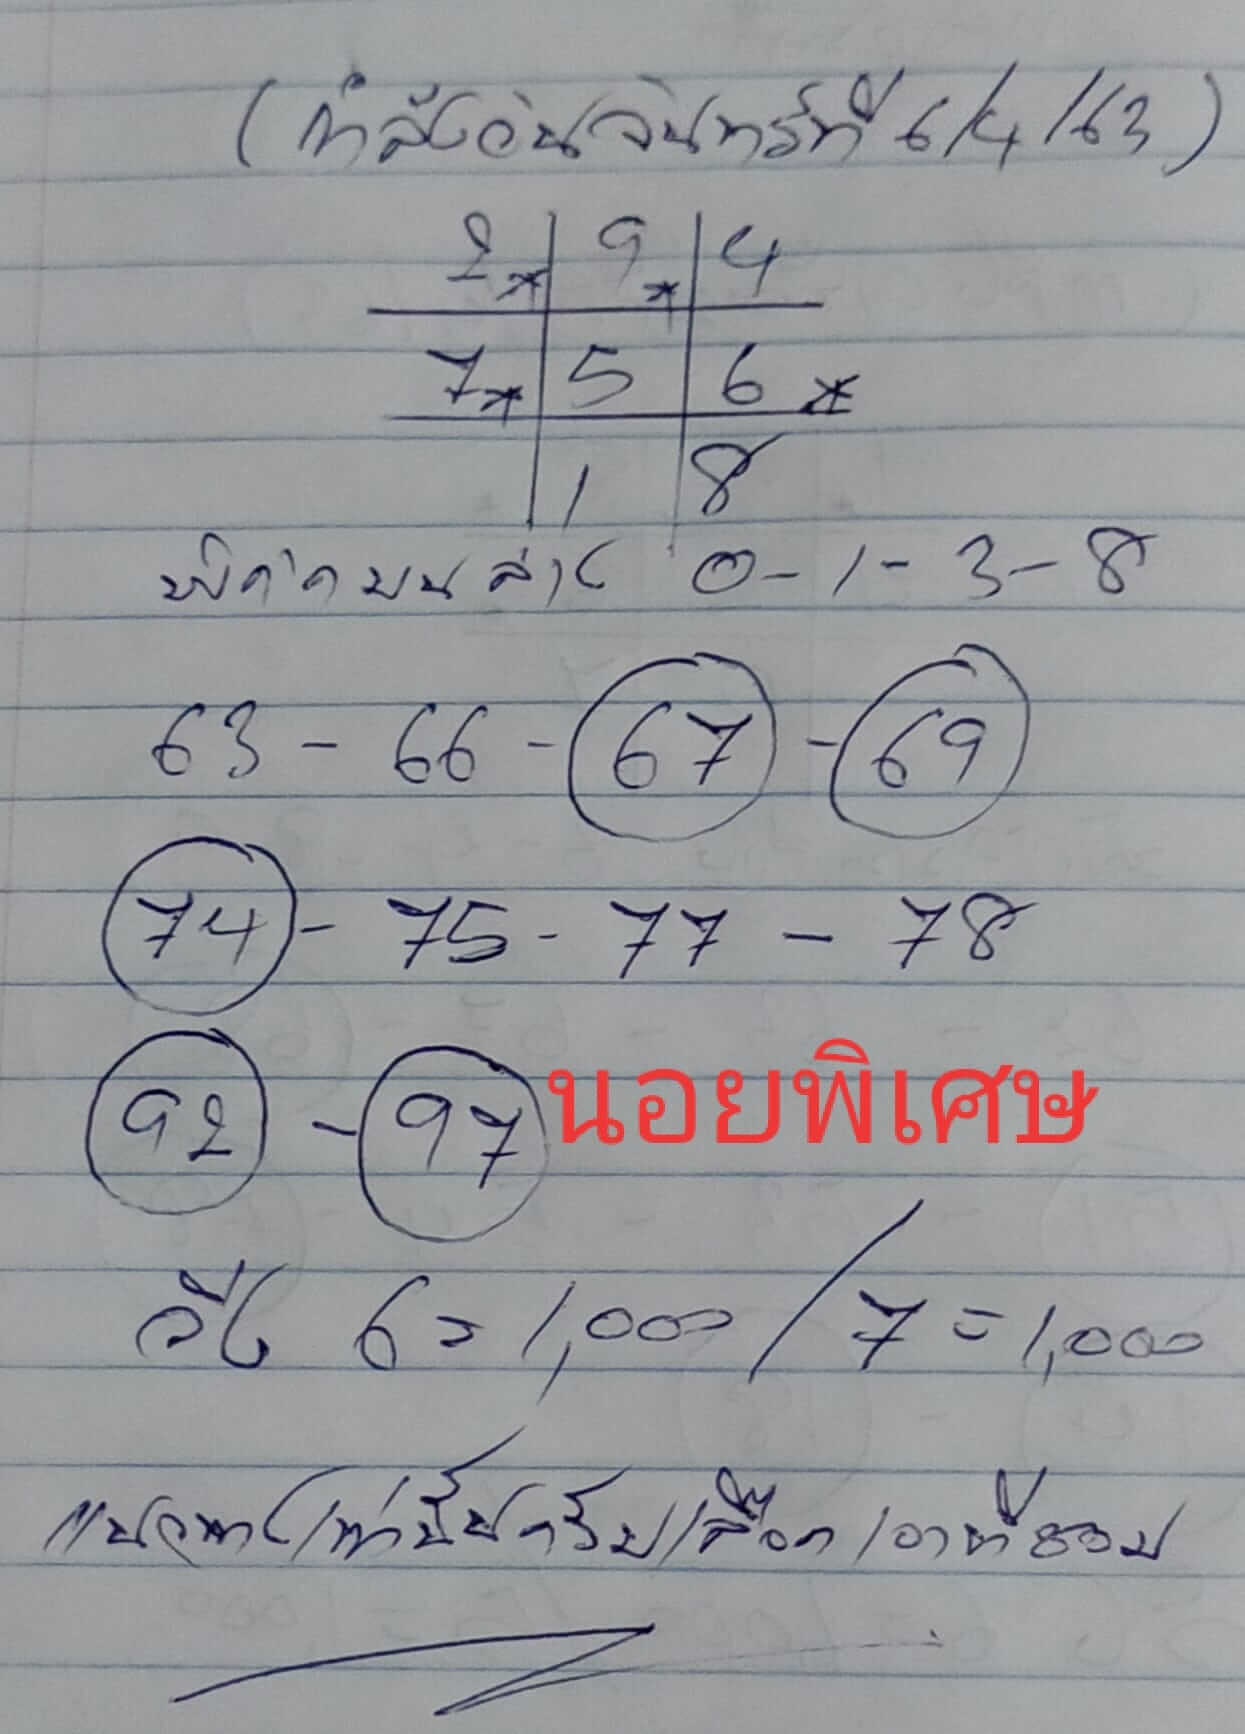 (กำลังวันจันทร์ที่ 6/4/63)
2* 9* 4
7* 5 6*
1 8
พิกัดบนล่าง 0-1-3-8
63 - 66 - 67 - 69
74 - 75 - 77 - 78
92 - 97 นอยพิเศษ
วิ่ง 6=1,000/7=1,000
แนวทางเท่านั้นครับเลือกเอาที่ชอบ